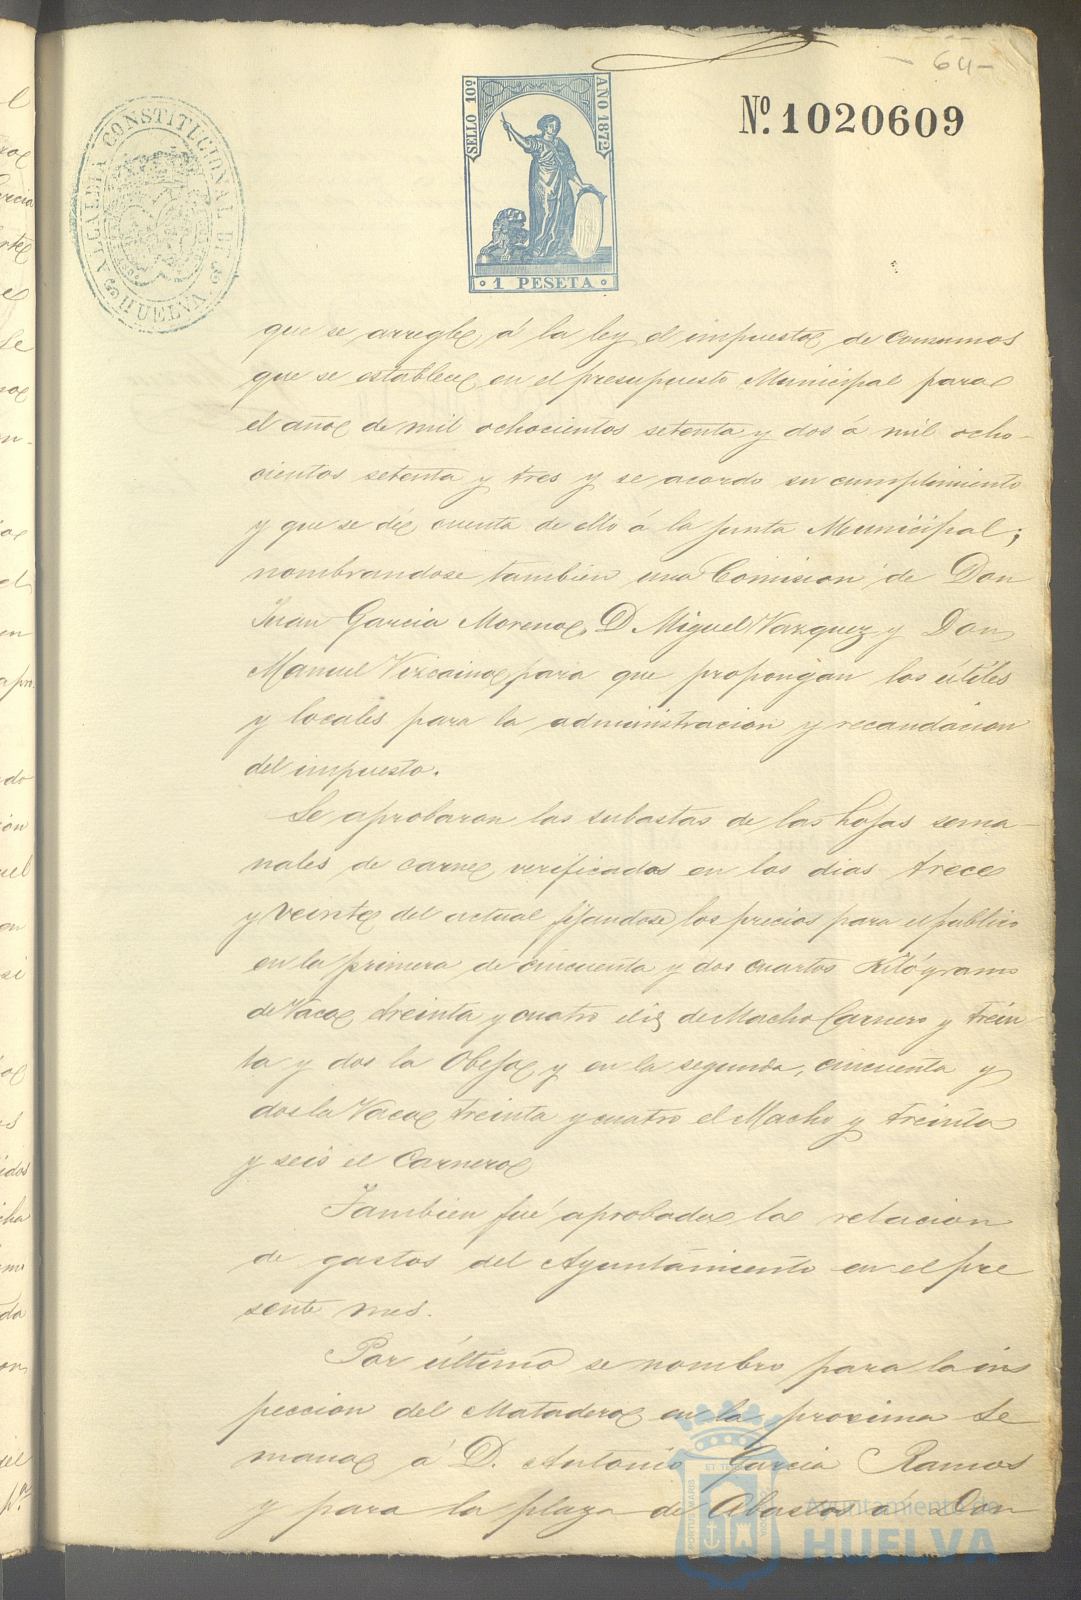 - 64 -
Nº. 1020609
SELLO 10º
AÑO 1872
1 PESETA
ALCALDIA CONSTITUCIONAL DE
HUELVA
que se arregle á la ley el impuesto de consumos
que se establece en el presupuesto Municipal para
el año de mil ochocientos setenta y dos á mil ocho-
cientos setenta y tres y se acordo su cumplimiento
y que se dé cuenta de ello á la Junta Municipal;
nombrandose tambien una Comision de Don
Juan Garcia Moreno, D Miguel Vazquez y Don
Manuel Vizcaino para que propongan los útiles
y locales para la administracion y recaudacion
del impuesto.
Se aprobaron las subastas de las hojas sema-
nales de carne verificadas en los dias trece
y veinte del actual fijandose los precios para el publico
en la primera de cincuenta y dos cuartos Kilógramo
de Vaca, treinta y cuatro id de Macho Carnero y trein
ta y dos la Obeja y en la segunda, cincuenta y
dos la Vaca treinta y cuatro el Macho y treinta
y seis el Carnero
Tambien fué aprobada la relacion
de gastos del Ayuntamiento en el pre
sente mes.
Por último se nombro para la ins
peccion del Matadero en la proxima Se
mana á D. Antonio Garcia Ramos
y para la plaza de Abastos á Don
Ayuntamiento de
HUELVA